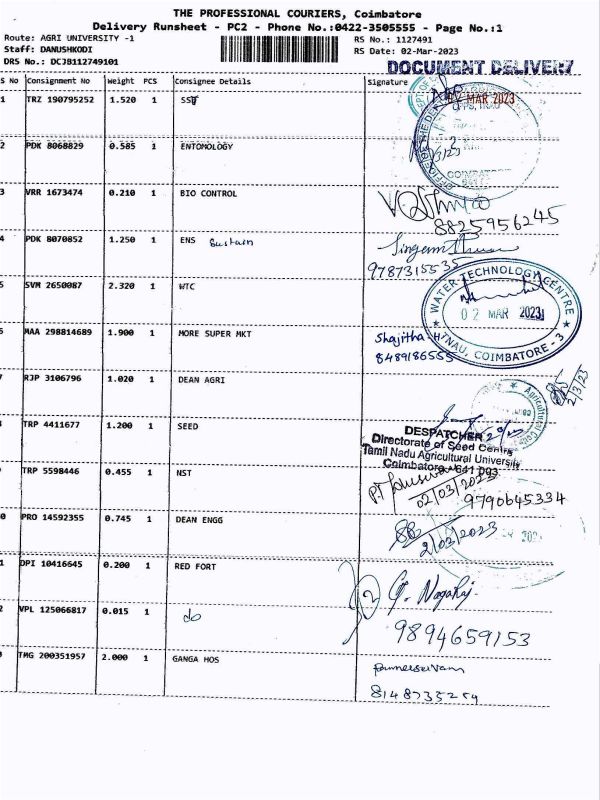 THE PROFESSIONAL COURIERS, Coimbatore
Delivery Runsheet - PC2 - Phone No.:0422-3505555 - Page No.:1
Route: AGRI UNIVERSITY -1
RS No.: 1127491
Staff: DANUSHKODI
RS Date: 02-Mar-2023
DRS No.: DCJB112749101
DOCUMENT DELIVERY
S No Consignment No Weight PCS Consignee Details Signature
1 TRZ 190795252 1.520 1 SST
02 MAR 2023
2 PDK 8068829 0.585 1 ENTOMOLOGY
COIMBATORE
3 VRR 1673474 0.210 1 BIO CONTROL
8825956245
4 PDK 8070852 1.250 1 ENS
9787315535
5 SVM 2650087 2.320 1 WTC
WATER TECHNOLOGY CENTRE
02 MAR 2023
TNAU, COIMBATORE - 3
6 MAA 298814689 1.900 1 MORE SUPER MKT
Shajitha.H
8489186555
7 RJP 3106796 1.020 1 DEAN AGRI
2/3/23
8 TRP 4411677 1.200 1 SEED
DESPATCHER
Directorate of Seed Centre
Tamil Nadu Agricultural University
Coimbatore - 641 003
9 TRP 5598446 0.455 1 NST
02/03/2023
9790645334
10 PRO 14592355 0.745 1 DEAN ENGG
2/02/2023
11 DPI 10416645 0.200 1 RED FORT
G. Nagaraj
12 VPL 125066817 0.015 1 do
9894659153
TMG 200351957 2.000 1 GANGA HOS
8148735259